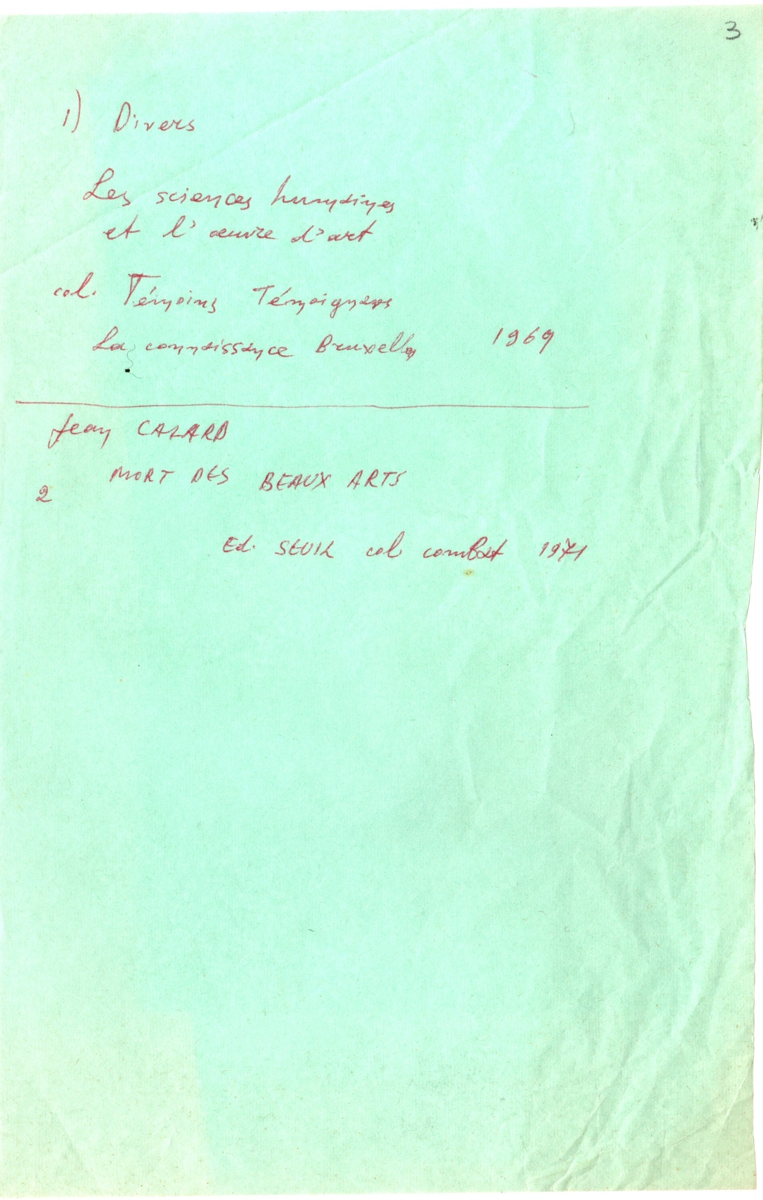 3
1) Divers
Les sciences humaines
et l'œuvre d'art
col. Témoins Témoignages
La connaissance Bruxelles 1969
Jean CAZARD
2 MORT DES BEAUX ARTS
Ed. SEUIL col combat 1971